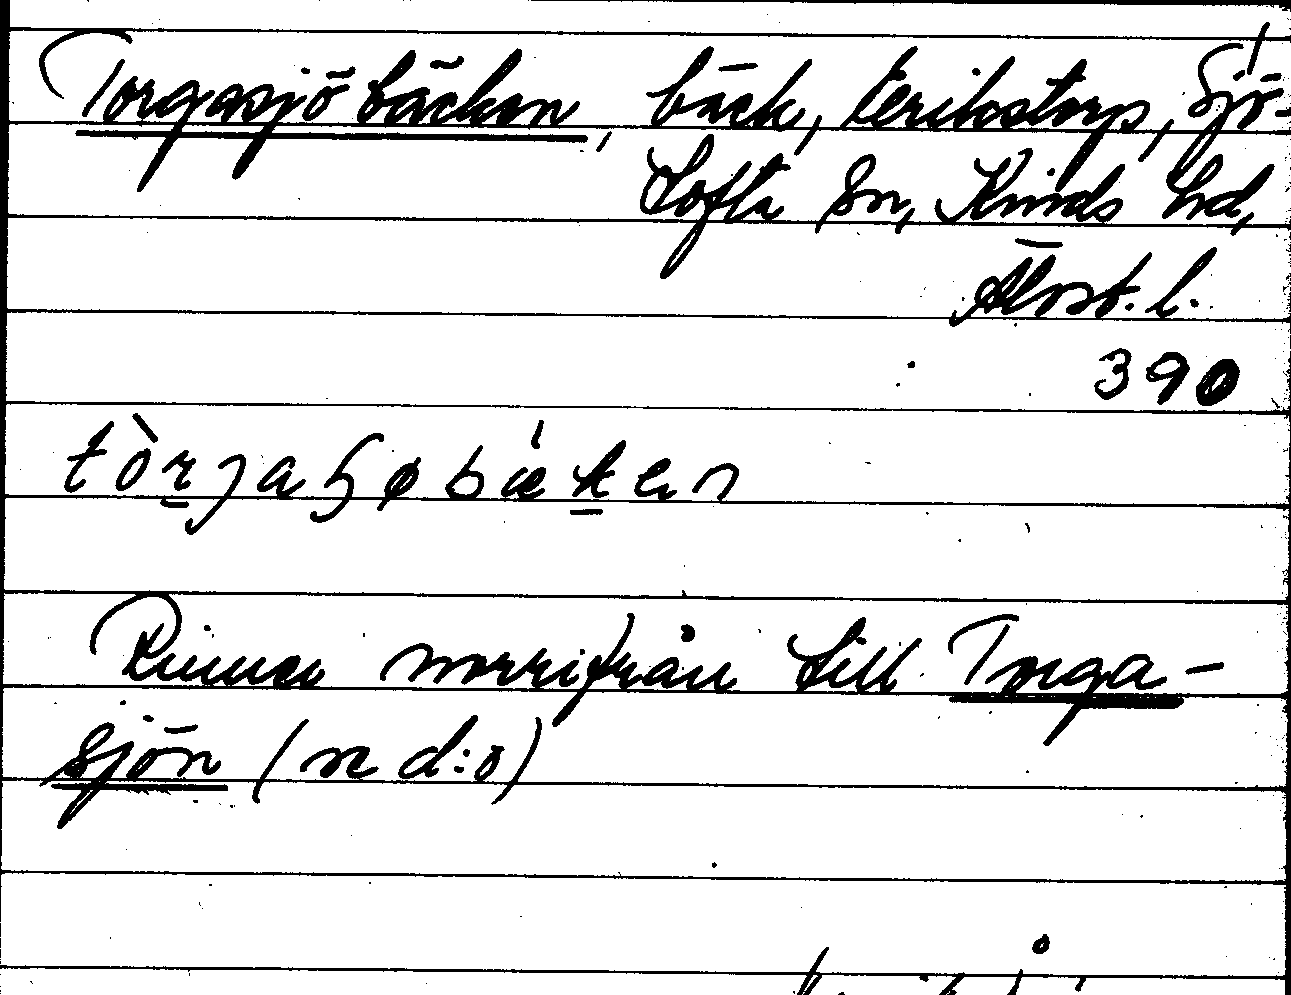 Torgasjöbäcken, bäck, Erikstorp, Sjö-
tofta sn, Kinds hd,
Älvsb. l.
390
tòrjaɧøbæken
Rinner norrifrån till Torga-
sjön (se d:o)